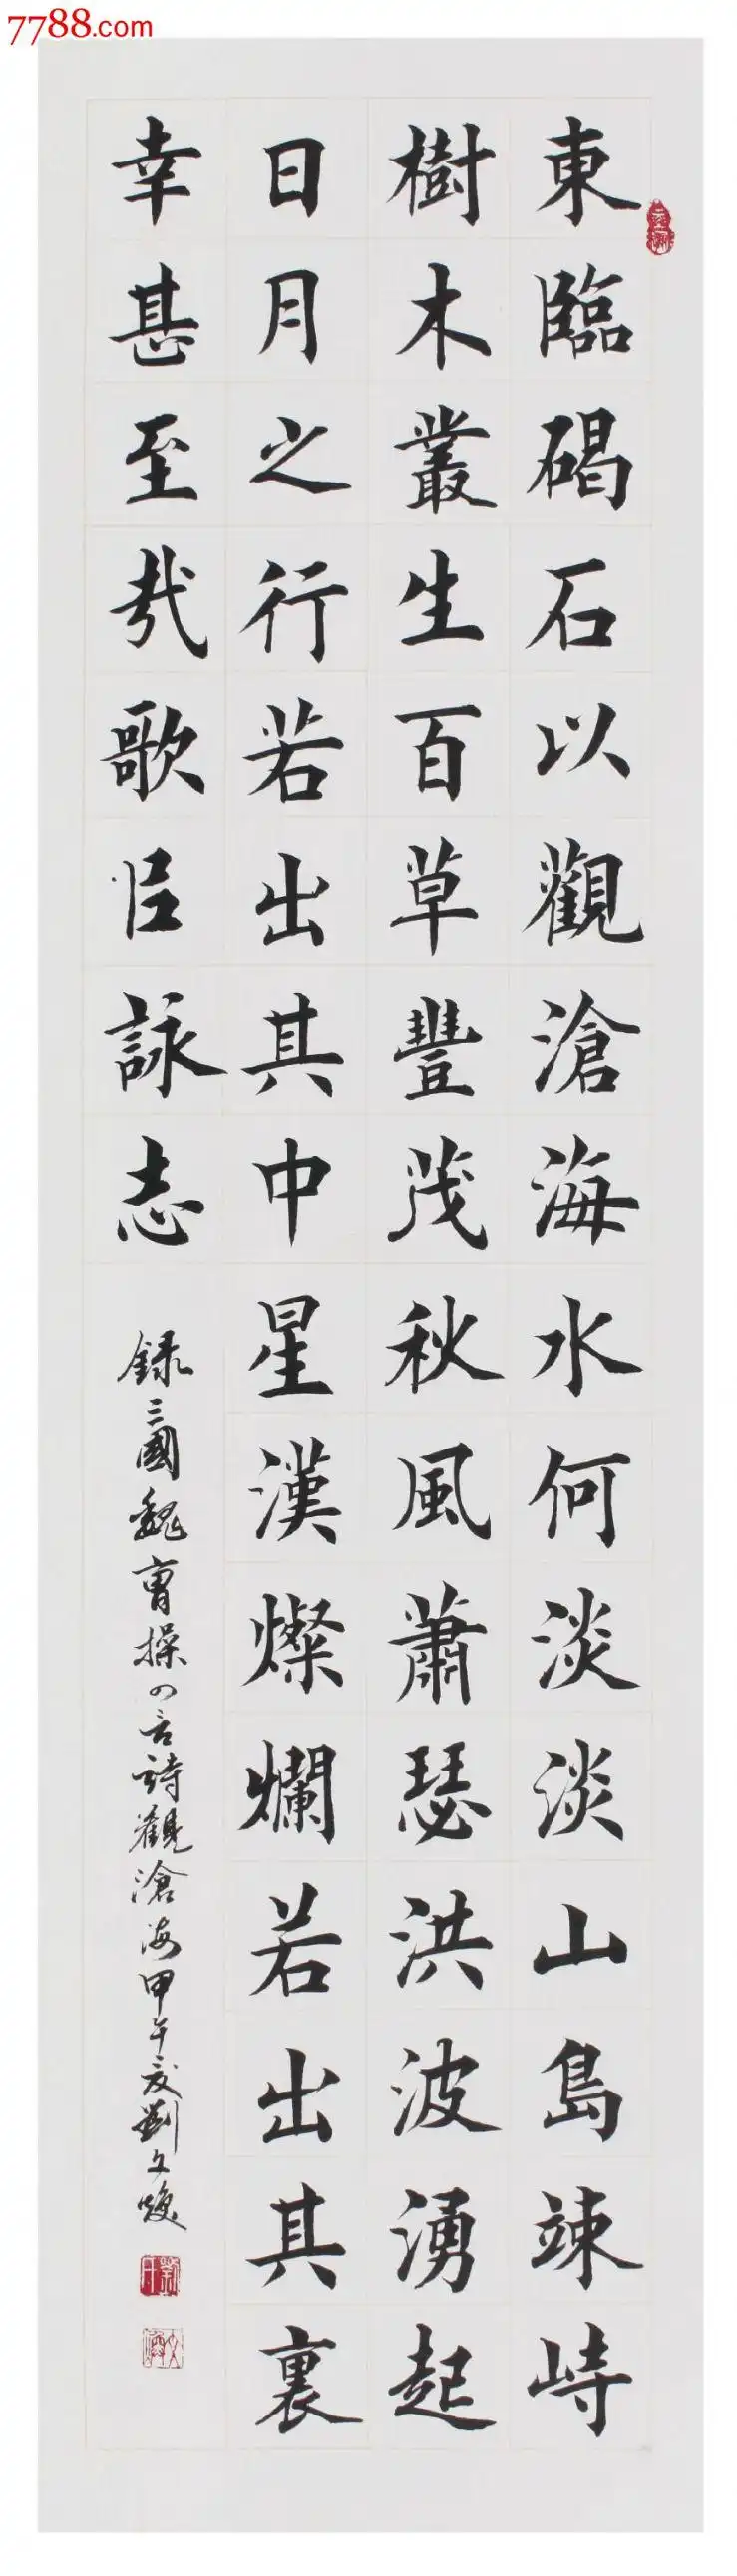 7788.com
東臨碣石以觀滄海水何淡淡山島竦峙
樹木叢生百草豐茂秋風蕭瑟洪波湧起
日月之行若出其中星漢燦爛若出其裏
幸甚至哉歌㠯詠志
録三國魏曹操四言詩觀滄海甲午夏劉文煥